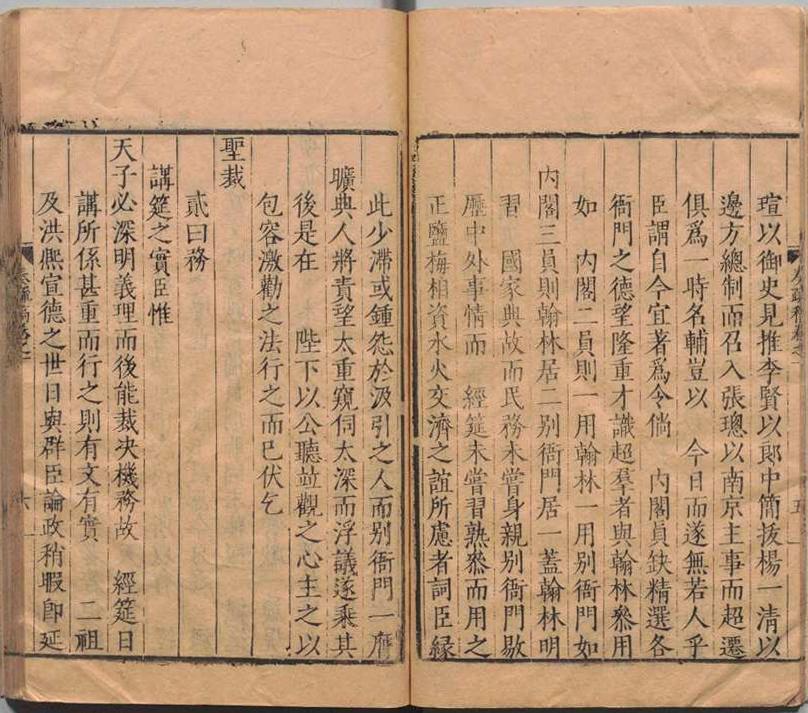 瑄以御史見推李賢以郎中簡拔楊一清以
邊方總制而召入張璁以南京主事而超遷
俱爲一時名輔豈以　今日而遂無若人乎
臣謂自今宜著爲令倘　內閣員缺精選各
衙門之德望隆重才識超羣者與翰林叅用
如　內閣二員則一用翰林一用別衙門如
內閣三員則翰林居二別衙門居一蓋翰林明
習　國家典故而民務未嘗身親別衙門敭
歷中外事情而　經筵未嘗習熟叅而用之
正鹽梅相資水火交濟之誼所慮者詞臣緣
此少滯或鍾怨於汲引之人而別衙門一膺
曠典人將責望太重窺伺太深而浮議遂乘其
後是在　陛下以公聽竝觀之心主之以
包容激勸之法行之而已伏乞
聖裁
貳曰務
講筵之實臣惟
天子必深明義理而後能裁决機務故　經筵日
講所係甚重而行之則有文有實　二祖
及洪熙宣德之世日與群臣論政稍暇卽延
六